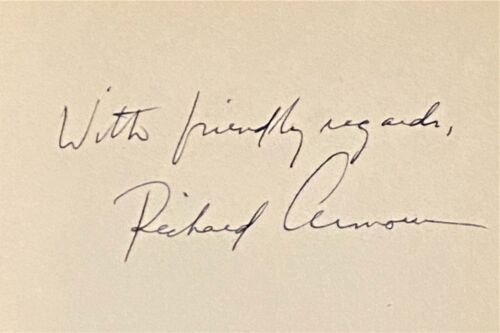 With friendly regards,
Richard Armour